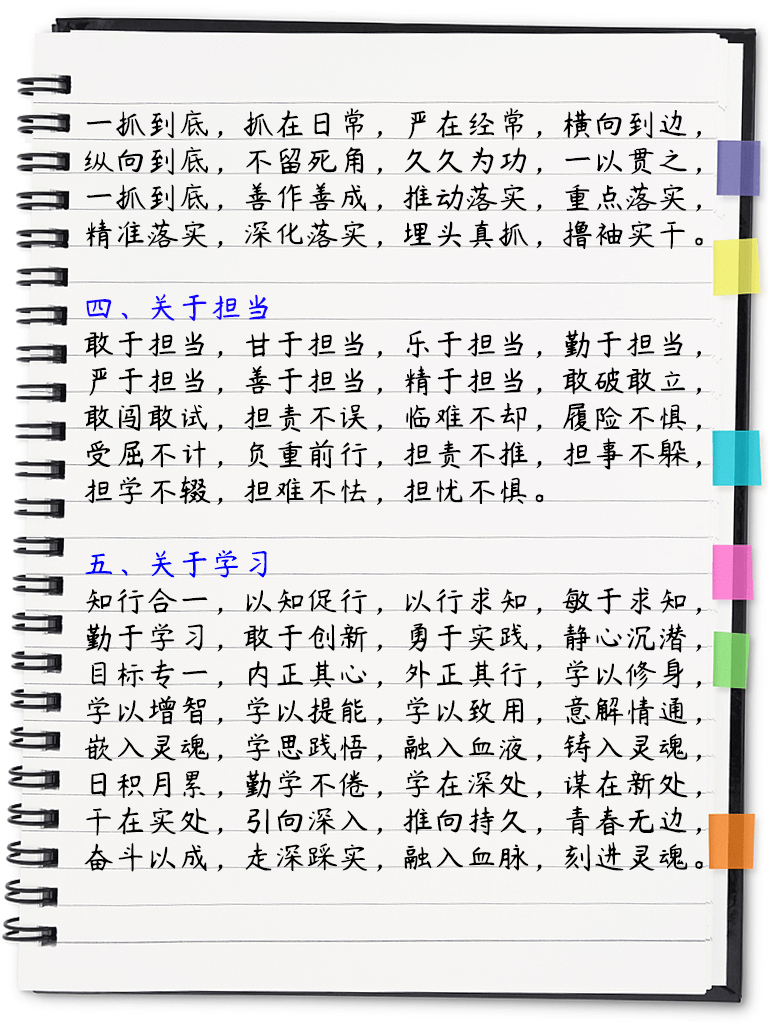 一抓到底，抓在日常，严在经常，横向到边，
纵向到底，不留死角，久久为功，一以贯之，
一抓到底，善作善成，推动落实，重点落实，
精准落实，深化落实，埋头真抓，撸袖实干。
四、关于担当
敢于担当，甘于担当，乐于担当，勤于担当，
严于担当，善于担当，精于担当，敢破敢立，
敢闯敢试，担责不误，临难不却，履险不惧，
受屈不计，负重前行，担责不推，担事不躲，
担学不辍，担难不怯，担忧不惧。
五、关于学习
知行合一，以知促行，以行求知，敏于求知，
勤于学习，敢于创新，勇于实践，静心沉潜，
目标专一，内正其心，外正其行，学以修身，
学以增智，学以提能，学以致用，意解情通，
嵌入灵魂，学思践悟，融入血液，铸入灵魂，
日积月累，勤学不倦，学在深处，谋在新处，
干在实处，引向深入，推向持久，青春无边，
奋斗以成，走深踩实，融入血脉，刻进灵魂。